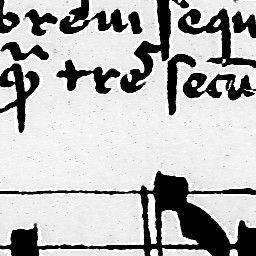 breui sequ
qr̄ tres secū